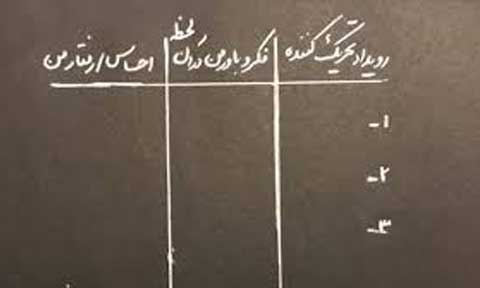 رویداد تحریک کننده | فکر و باور من در آن لحظه | احساس / رفتار من
۱-
۲-
۳-